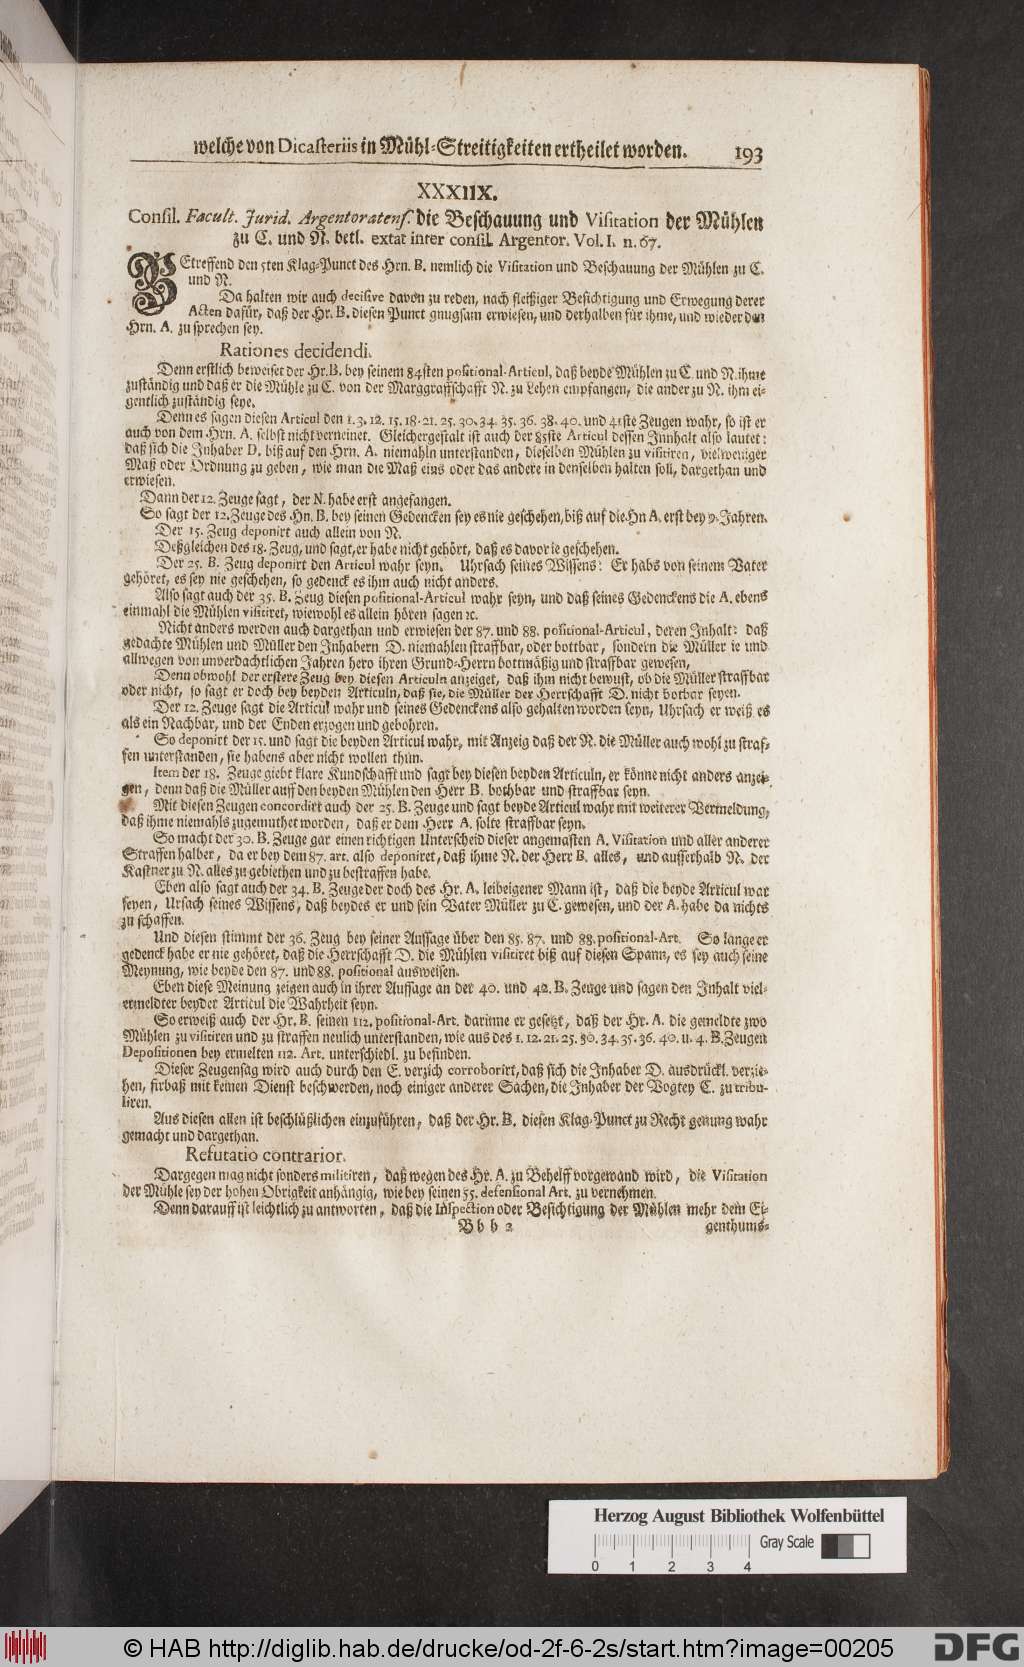 welche von Dicasteriis in Mühl-Streitigkeiten ertheilet worden. 193
XXXIIX.
Consil. Facult. Jurid. Argentoratens. die Beschauung und Visitation der Mühlen
zu C. und N. betl. extat inter consil. Argentor. Vol. I. n. 67.
BEtreffend den 5ten Klag-Punct des Hrn. B. nemlich die Visitation und Beschauung der Mühlen zu C.
und N.
Da halten wir auch decisive davon zu reden, nach fleißiger Besichtigung und Erwegung derer
Acten dafür, daß der Hr. B. diesen Punct gnugsam erwiesen, und derhalben für ihme, und wieder den
Hrn. A. zu sprechen sey.
Rationes decidendi.
Denn erstlich beweiset der Hr. B. bey seinem 84sten positional-Articul, daß beyde Mühlen zu C. und N. ihme
zuständig und daß er die Mühle zu C. von der Marggraffschafft N. zu Lehen empfangen, die ander zu N. ihm ei-
gentlich zuständig seye.
Denn es sagen diesen Articul den 1. 3. 12. 15. 18. 21. 25. 30. 34. 35. 36. 38. 40. und 41ste Zeugen wahr, so ist er
auch von dem Hrn. A. selbst nicht verneinet. Gleichergestalt ist auch der 85ste Articul dessen Innhalt also lautet:
daß sich die Inhaber D. biß auf den Hrn. A. niemahln unterstanden, dieselben Mühlen zu visitiren, vielweniger
Maß oder Ordnung zu geben, wie man die Maß eins oder das andere in denselben halten soll, dargethan und
erwiesen.
Dann der 12. Zeuge sagt, der N. habe erst angefangen.
So sagt der 12. Zeuge des Hn. B. bey seinen Gedencken sey es nie geschehen, biß auf die Hn A. erst bey 9. Jahren.
Der 15. Zeug deponirt auch allein von N.
Deßgleichen des 18. Zeug, und sagt, er habe nicht gehört, daß es davor ie geschehen.
Der 25. B. Zeug deponirt den Articul wahr seyn. Uhrsach seines Wissens: Er habs von seinem Vater
gehöret, es sey nie geschehen, so gedenck es ihm auch nicht anders.
Also sagt auch der 35. B. Zeug diesen positional-Articul wahr seyn, und daß seines Gedenckens die A. ebens
einmahl die Mühlen visitiret, wiewohl es allein hören sagen ꝛc.
Nicht anders werden auch dargethan und erwiesen der 87. und 88. positional-Articul, deren Inhalt: daß
gedachte Mühlen und Müller den Inhabern D. niemahlen straffbar, oder bottbar, sondern die Müller ie und
allwegen von unverdachtlichen Jahren hero ihren Grund-Herrn bottmäßig und straffbar gewesen,
Denn obwohl der erstere Zeug bey diesen Articuln anzeiget, daß ihm nicht bewust, ob die Müller straffbar
oder nicht, so sagt er doch bey beyden Articuln, daß sie, die Müller der Herrschafft D. nicht botbar seyen.
Der 12. Zeuge sagt die Articul wahr und seines Gedenckens also gehalten worden seyn, Uhrsach er weiß es
als ein Nachbar, und der Enden erzogen und gebohren.
So deponirt der 15. und sagt die beyden Articul wahr, mit Anzeig daß der N. die Müller auch wohl zu straf-
fen unterstanden, sie habens aber nicht wollen thun.
Item der 18. Zeuge giebt klare Kundschafft und sagt bey diesen beyden Articuln, er könne nicht anders anzei-
gen, denn daß die Müller auff den beyden Mühlen den Herr B. bothbar und straffbar seyn.
Mit diesen Zeugen concordirt auch der 25. B. Zeuge und sagt beyde Articul wahr mit weiterer Vermeldung,
daß ihme niemahls zugemuthet worden, daß er dem Herr A. solte straffbar seyn.
So macht der 30. B. Zeuge gar einen richtigen Unterscheid dieser angemasten A. Visitation und aller anderer
Straffen halber, da er bey dem 87. art. also deponiret, daß ihme N. der Herr B. alles, und ausserhalb N. der
Kastner zu N. alles zu gebiethen und zu bestraffen habe.
Eben also sagt auch der 34. B. Zeuge der doch des Hr. A. leibeigener Mann ist, daß die beyde Articul war
seyen, Ursach seines Wissens, daß beydes er und sein Vater Müller zu C. gewesen, und der A. habe da nichts
zu schaffen.
Und diesen stimmt der 36. Zeug bey seiner Aussage über den 85. 87. und 88. positional-Art. So lange er
gedenck habe er nie gehöret, daß die Herrschafft D. die Mühlen visitiret biß auf diesen Spann, es sey auch seine
Meynung, wie beyde den 87. und 88. positional ausweisen.
Eben diese Meinung zeigen auch in ihrer Aussage an der 40. und 42. B. Zeuge und sagen den Inhalt viel-
ermeldter beyder Articul die Wahrheit seyn.
So erweiß auch der Hr. B. seinen 112. positional-Art. darinne er gesetzt, daß der Hr. A. die gemeldte zwo
Mühlen zu visitiren und zu straffen neulich unterstanden, wie aus des 1. 12. 21. 25. 30. 34. 35. 36. 40. u. 4. B. Zeugen
Depositionen bey ermelten 112. Art. unterschiedl. zu befinden.
Dieser Zeugensag wird auch durch den E. verzich corroborirt, daß sich die Inhaber D. ausdrückl. verzie-
hen, firbaß mit keinen Dienst beschwerden, noch einiger anderer Sachen, die Inhaber der Vogtey C. zu tribu-
liren.
Aus diesen allen ist beschlüßlichen einzuführen, daß der Hr. B. diesen Klag-Punct zu Recht genung wahr
gemacht und dargethan.
Refutatio contrarior.
Dargegen mag nicht sonders militiren, daß wegen des Hr. A. zu Behelff vorgewand wird, die Visitation
der Mühle sey der hohen Obrigkeit anhängig, wie bey seinen 55. defensional Art. zu vernehmen.
Denn darauff ist leichtlich zu antworten, daß die Inspection oder Besichtigung der Mühlen mehr dem Ei-
B b b 2 genthums-
Herzog August Bibliothek Wolfenbüttel
Gray Scale
0 1 2 3 4
© HAB http://diglib.hab.de/drucke/od-2f-6-2s/start.htm?image=00205
DFG